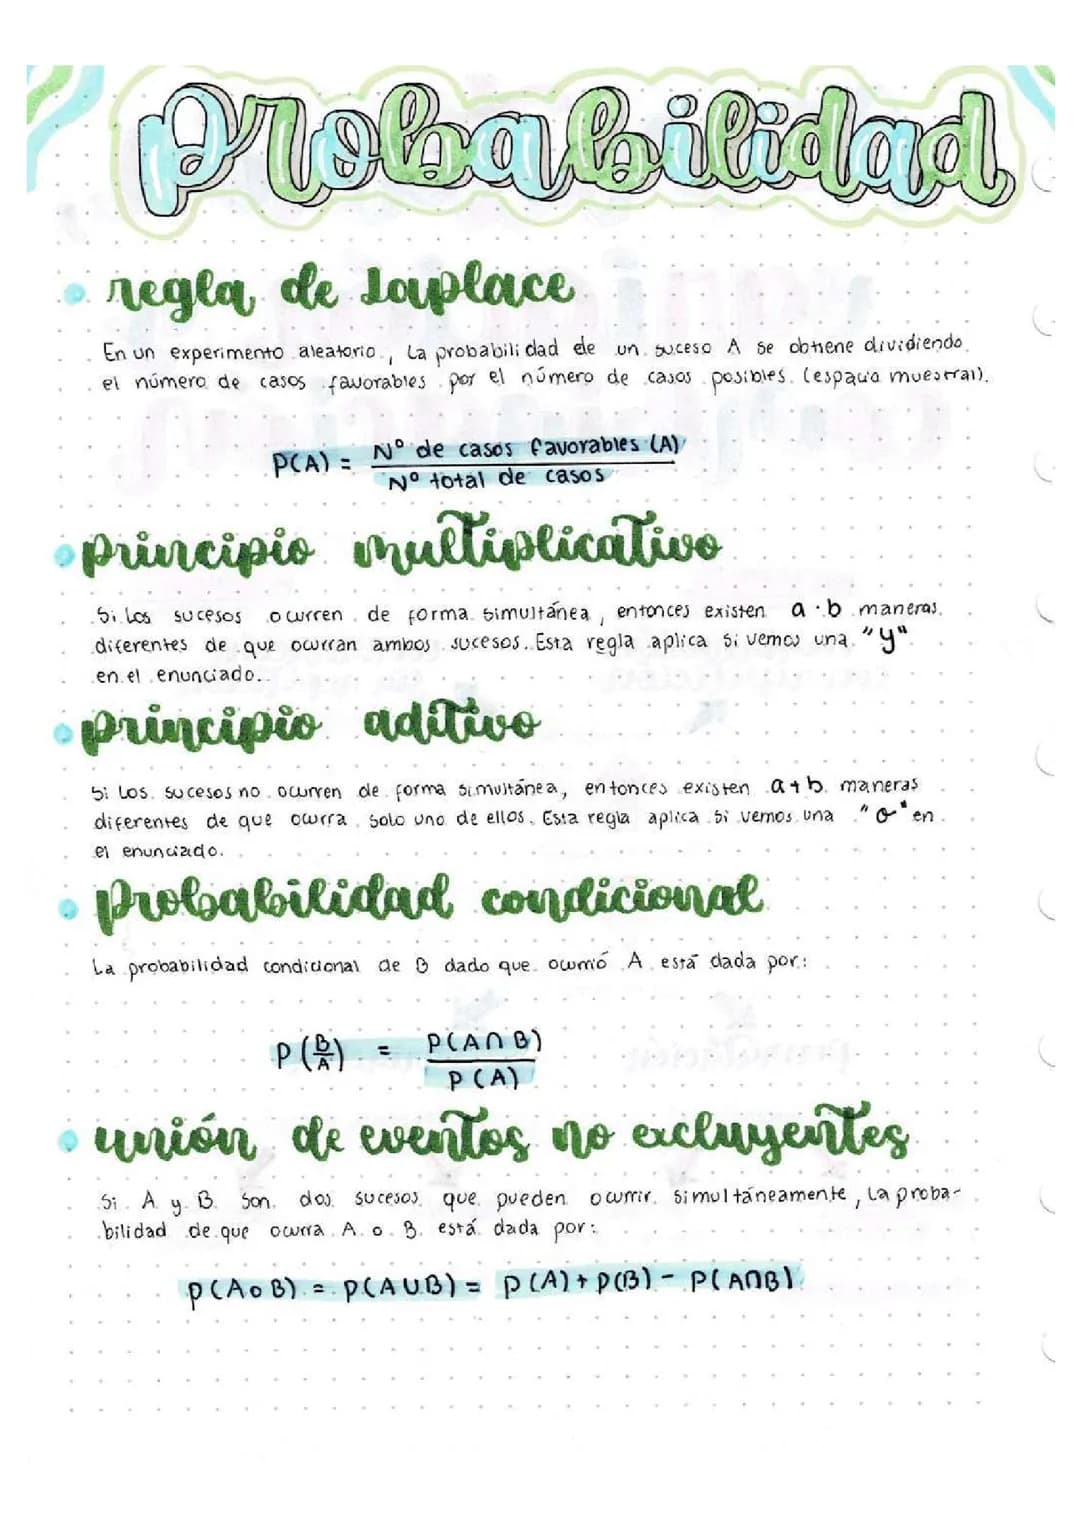 probabilidad
regla de Laplace
En un experimento aleatorio, La probabilidad de un suceso A se obtiene dividiendo
el número de casos favorables por el número de casos posibles. (espacio muestral).
P(A) = Nº de casos favorables (A)
Nº total de casos
principio multiplicativo
Si Los sucesos ocurren de forma simultánea, entonces existen a · b maneras
diferentes de que ocurran ambos sucesos. Esta regla aplica si vemos una "y"
en el enunciado.
principio aditivo
Si Los sucesos no ocurren de forma simultánea, entonces existen a + b maneras
diferentes de que ocurra solo uno de ellos. Esta regla aplica si vemos una "o" en
el enunciado.
probabilidad condicional
La probabilidad condicional de B dado que ocurrió A está dada por:
P(B/A) = P(A∩B)
P(A)
unión de eventos no excluyentes
Si A y B son dos sucesos que pueden ocurrir simultáneamente, La proba-
bilidad de que ocurra A o B está dada por:
P(A o B) = P(A∪B) = P(A) + P(B) - P(A∩B)